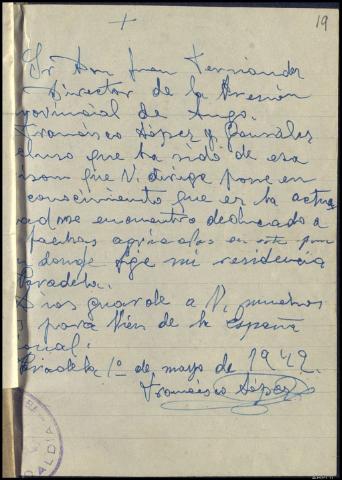 19
+
Sr Don Juan Fernandez
Director de la Presion
provincial de Lugo.
Francisco López y González
que ha sido de esa
que V. dirige pone en
conocimiento que en la actua
me encuentro dedicado a
faenas agricolas en este
donde fige mi residencia
Paradela.
Dios guarde a V. muchos
para bien de la España
Paradela 1º de mayo de 1942.
Francisco López
ALCALDIA